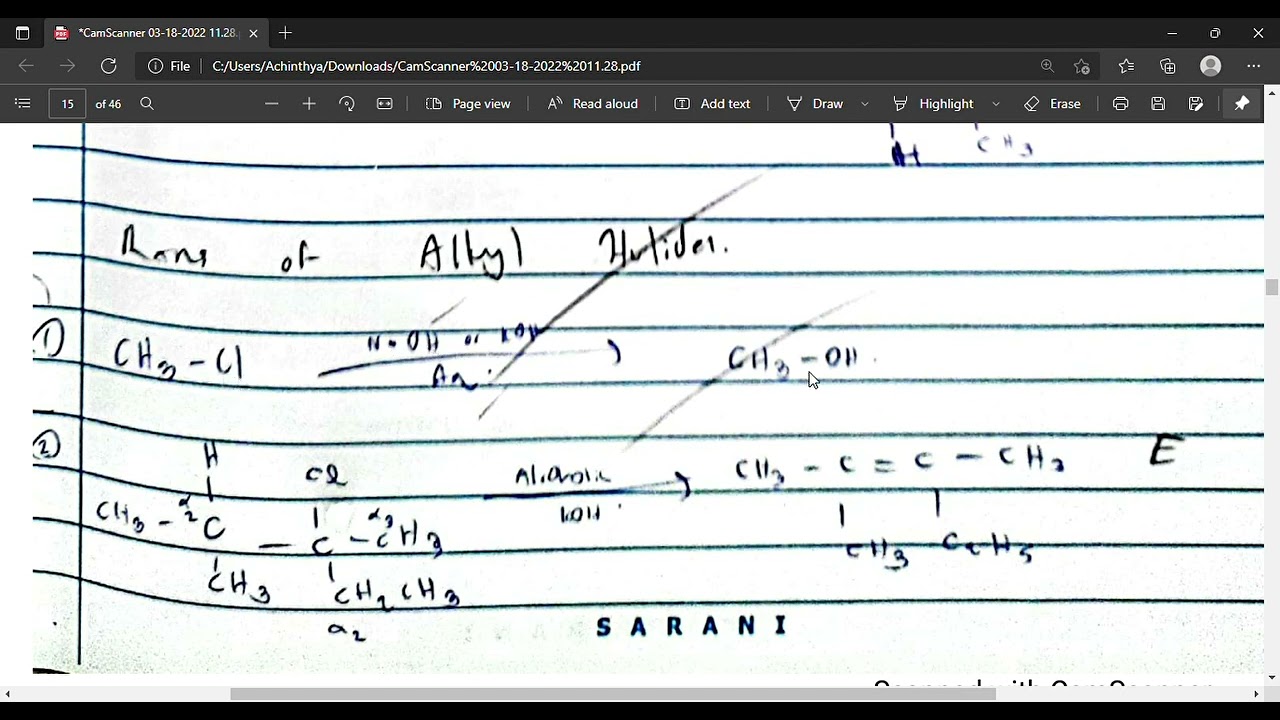 *CamScanner 03-18-2022 11.28.
File C:/Users/Achinthya/Downloads/CamScanner%2003-18-2022%2011.28.pdf
15 of 46 Page view Read aloud Add text Draw Highlight Erase
H CH3
Rxns of Alkyl Halides.
1) CH3 - Cl NaOH or KOH Aq. CH3 - OH.
2) H Cl Alcoholic KOH. CH3 - C = C - CH3 E
CH3 - C - C - CH3 CH3 C2H5
CH3 CH2 CH3
SARANI
Scanned with CamScanner